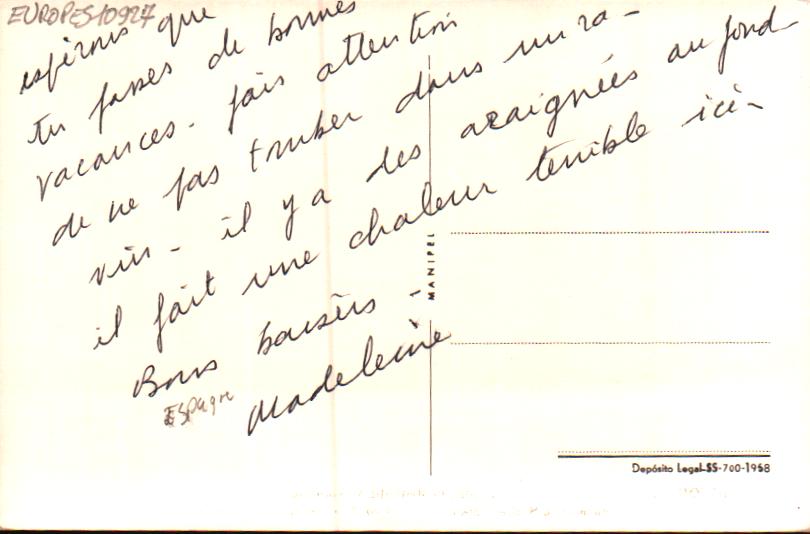 EUROPES10927
espérons que
tu passes de bonnes
vacances - fais attention
de ne pas tomber dans un ra-
vin - il y a des araignées au fond
il fait une chaleur terrible ici -
Bons baisers -
Madeleine
Espagne
MANIPEL
Depósito Legal-SS-700-1968